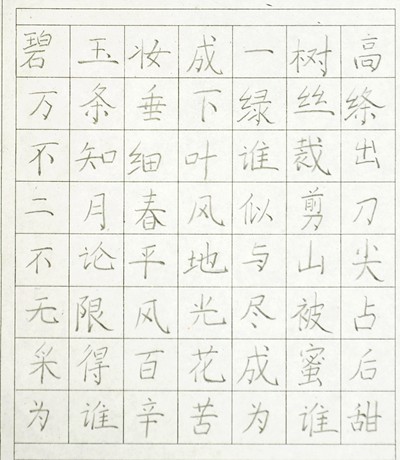 碧玉妆成一树高
万条垂下绿丝绦
不知细叶谁裁出
二月春风似剪刀
不论平地与山尖
无限风光尽被占
采得百花成蜜后
为谁辛苦为谁甜